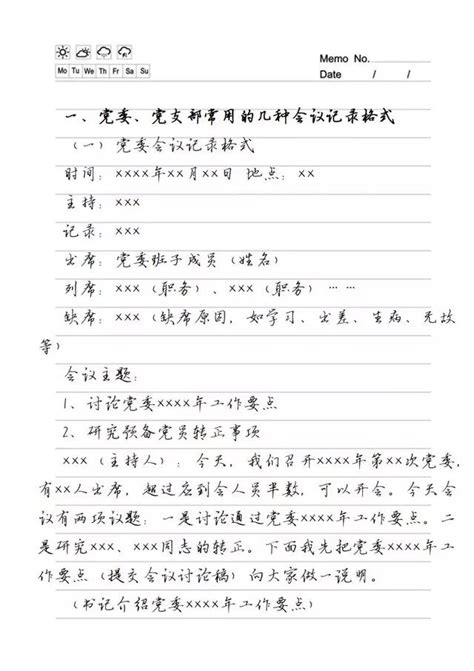 Memo No.
Mo Tu We Th Fr Sa Su
Date / /
一、党委、党支部常用的几种会议记录格式
（一）党委会议记录格式
时间：××××年××月××日 地点：××
主持：×××
记录：×××
出席：党委班子成员（姓名）
列席：×××（职务）、×××（职务）……
缺席：×××（缺席原因，如学习、出差、生病、无故
等）
会议主题：
1、讨论党委××××年工作要点
2、研究预备党员转正事项
×××（主持人）：今天，我们召开××××年第××次党委，
有××人出席，超过应到会人员半数，可以开会。今天会
议有两项议题：一是讨论通过党委××××年工作要点。二
是研究×××、×××同志的转正。下面我先把党委××××年工
作要点（提交会议讨论稿）向大家做一说明。
（书记介绍党委××××年工作要点）